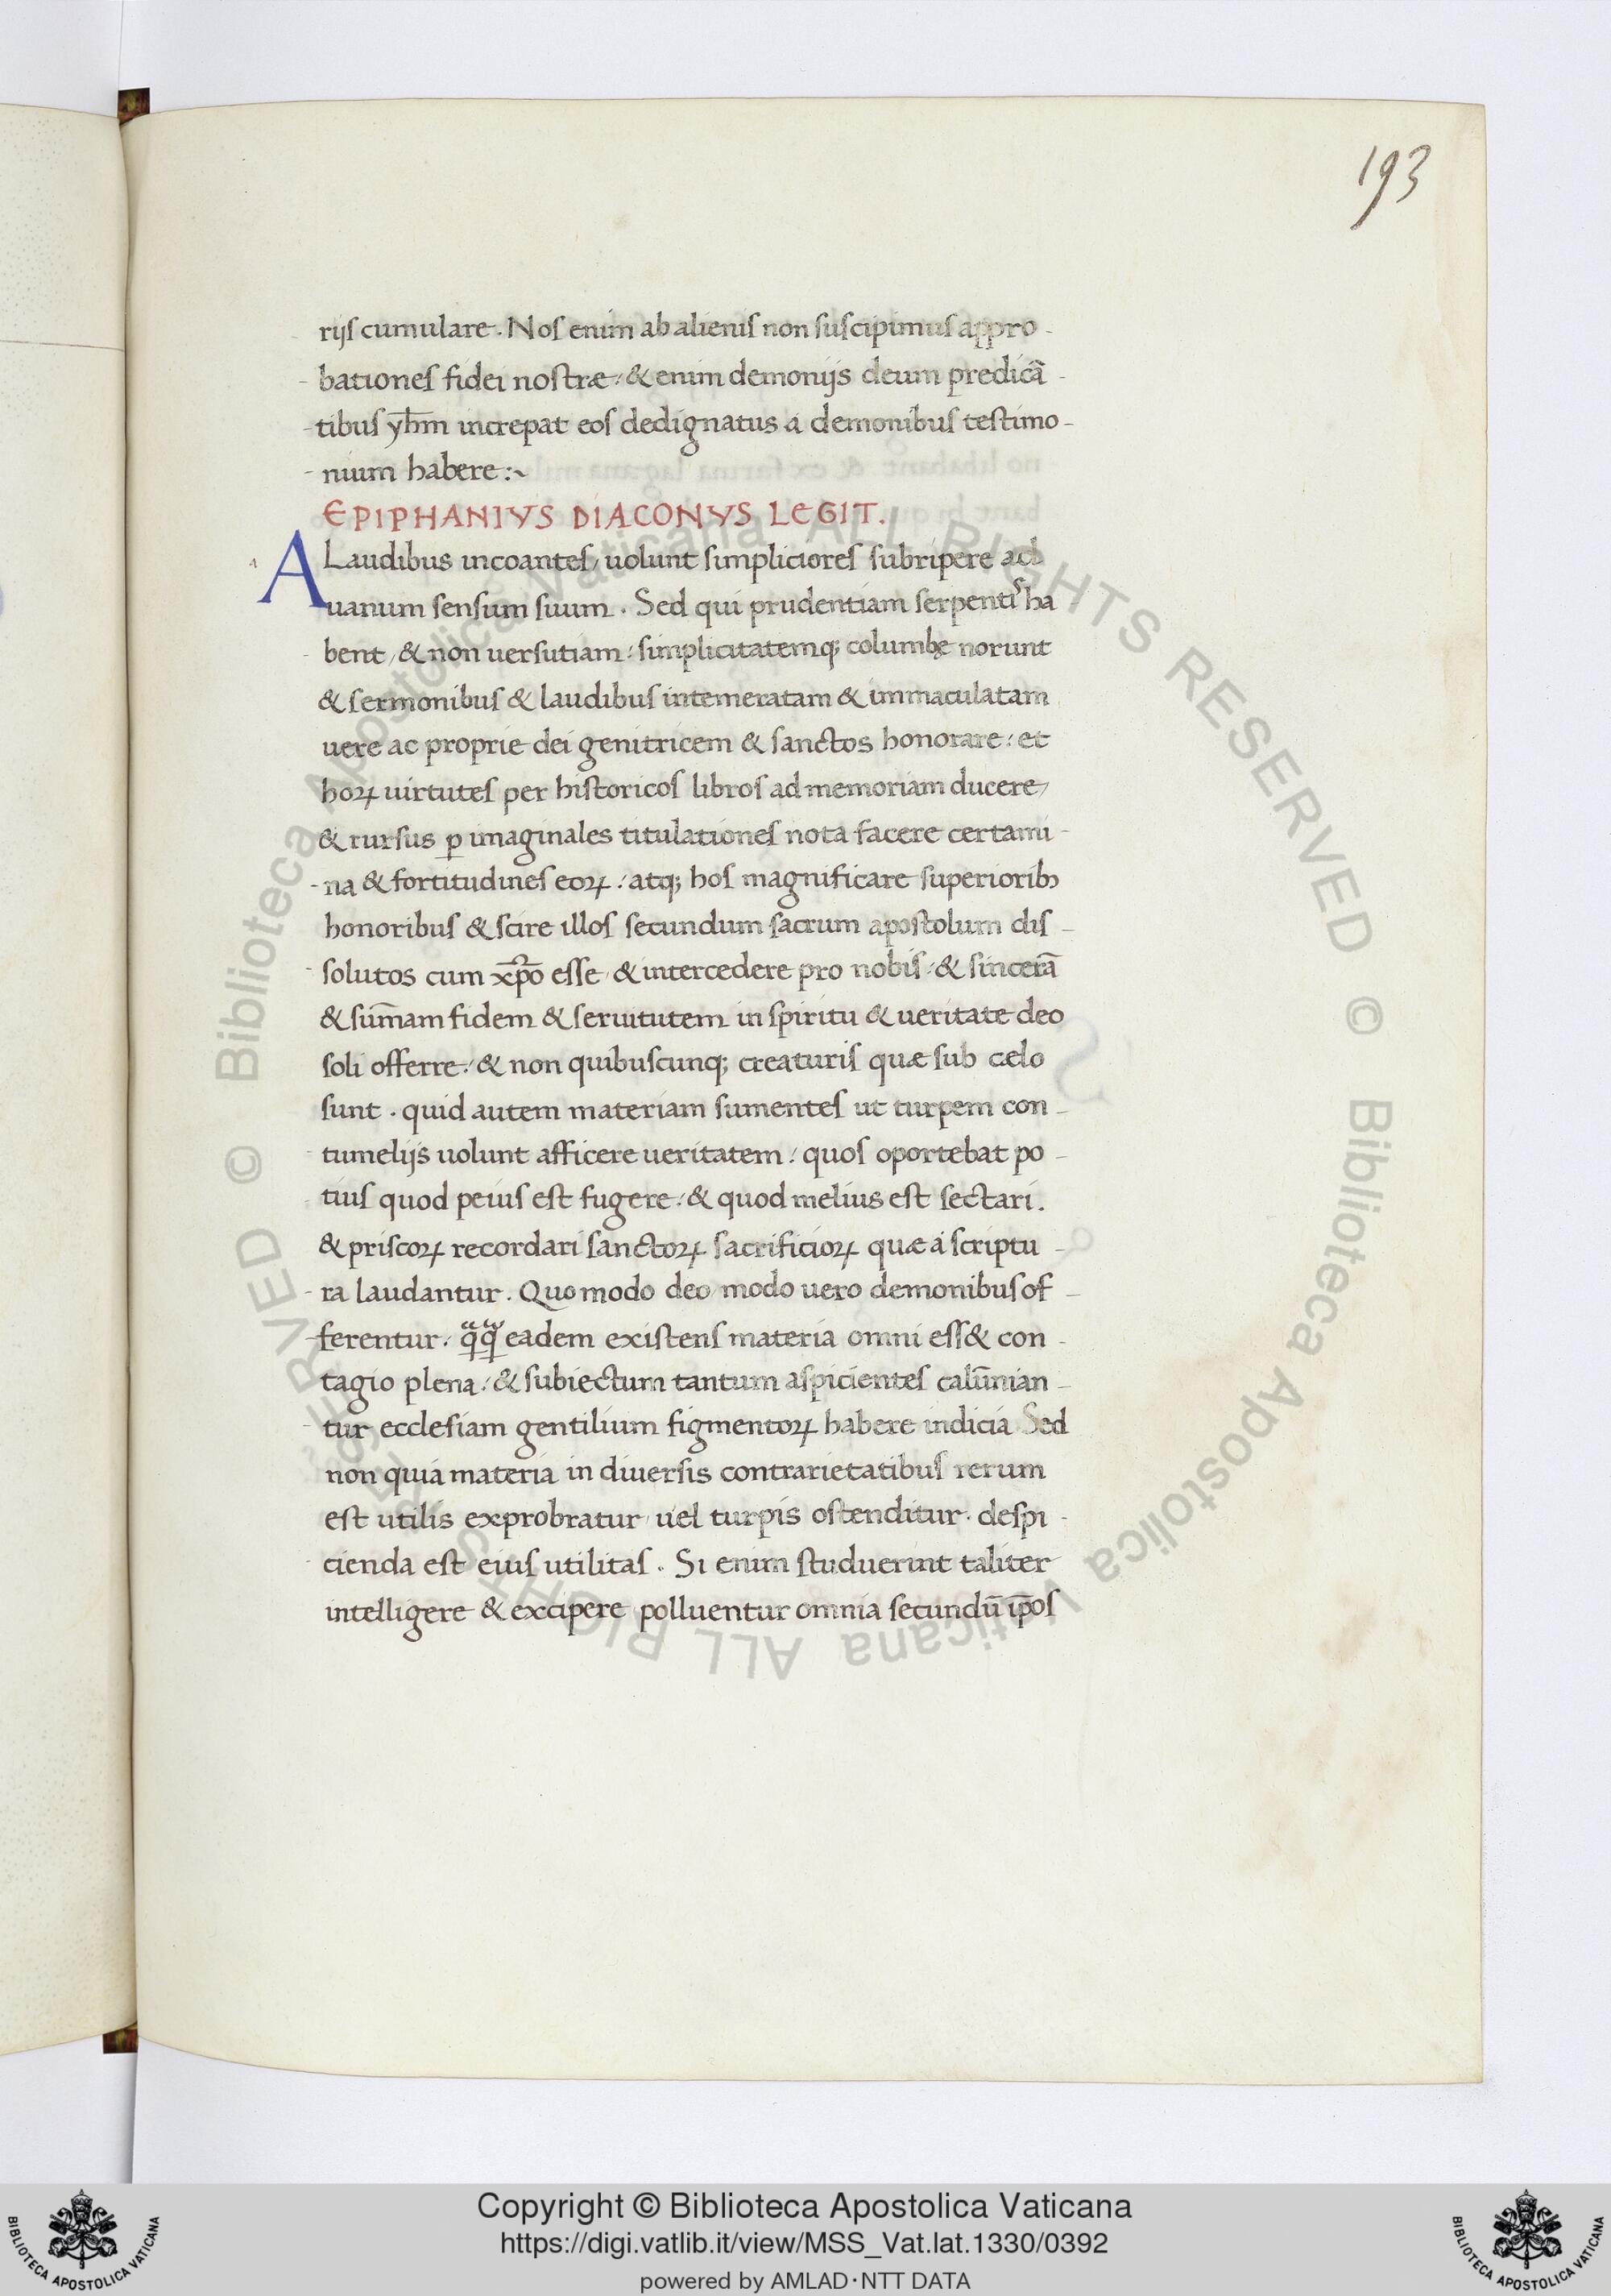 193
rijs cumulare. Nos enim ab alienis non suscipimus appro-
-bationes fidei nostræ: & enim demonijs deum predicā-
-tibus yħm increpat eos dedignatus a demonibus testimo-
-nium habere:~
EPIPHANIVS DIACONVS LEGIT.
A Laudibus incoantes, uolunt simpliciores subripere ad
uanum sensum suum. Sed qui prudentiam serpentis ha
bent, & non uersutiam: simplicitatemq; columbę norunt
& sermonibus & laudibus intemeratam & immaculatam
uere ac proprie dei genitricem & sanctos honorare: et
horꝝ uirtutes per historicos libros ad memoriam ducere,
& rursus ꝑ imaginales titulationes nota facere certami-
-na & fortitudines eorꝝ: atq; hos magnificare superiorib;
honoribus & scire illos secundum sacrum apostolum dis-
solutos cum xp̄o esse, & intercedere pro nobis: & sincerā
& sum̄am fidem & seruitutem in spiritu & ueritate deo
soli offerre: & non quibuscunq; creaturis quæ sub cælo
sunt. quid autem materiam sumentes ut turpem con-
tumelijs uolunt afficere ueritatem: quos oportebat po-
tius quod peius est fugere: & quod melius est sectari.
& priscorꝝ recordari sanctorꝝ sacrificiorꝝ quæ a scriptu-
-ra laudantur. Quo modo deo modo uero demonibus of-
-ferentur: qͣqͣ eadem existens materia omni ess& con-
tagio plena: & subiectum tantum aspicientes calūnian-
-tur ecclesiam gentilium figmentorꝝ habere indicia Sed
non quia materia in diuersis contrarietatibus rerum
est utilis exprobratur uel turpis ostenditur. despi-
cienda est eius utilitas. Si enim studuerint taliter
intelligere & excipere polluentur omnia secundū ip̄os
© Biblioteca Apostolica Vaticana ALL RIGHTS RESERVED © Biblioteca Apostolica Vaticana ALL RIGHTS RESERVED
Copyright © Biblioteca Apostolica Vaticana
https://digi.vatlib.it/view/MSS_Vat.lat.1330/0392
powered by AMLAD·NTT DATA
BIBLIOTECA APOSTOLICA VATICANA
BIBLIOTECA APOSTOLICA VATICANA